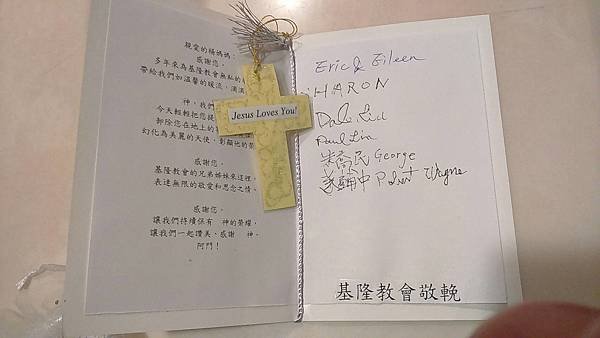 親愛的楊媽媽，
感謝您，
多年來為基隆教會無私的
帶給我們如溫馨的暖流，滴
神，我們
今天輕輕把您提
卸除您在地上的
幻化為美麗的天使，彰顯祂的
感謝您，
基隆教會的兄弟姊妹來這裡，
表達無限的敬愛和思念之情。
感謝您，
讓我們持續保有 神的榮耀，
讓我們一起讚美、感謝 神。
阿門！
Jesus Loves You!
Eric & Eileen
SHARON
Paul Lin
George
Wayne
基隆教會敬輓